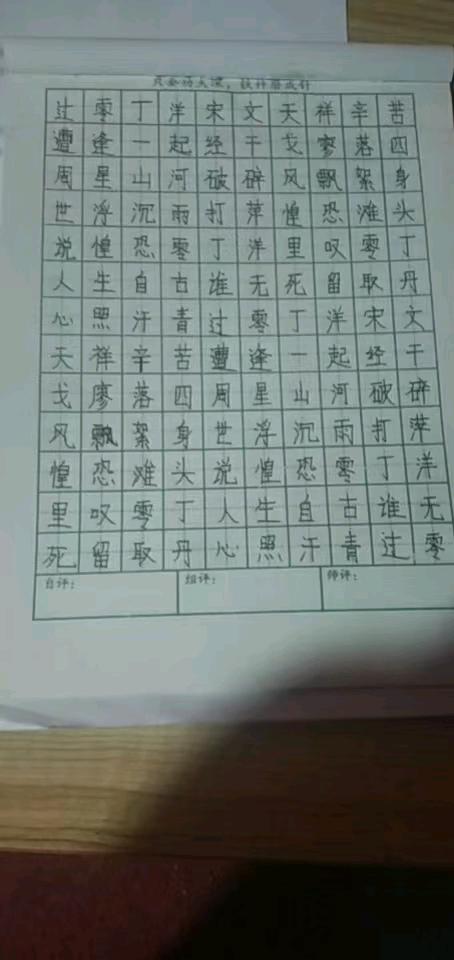 只要功夫深，铁杵磨成针
过零丁洋宋文天祥辛苦
遭逢一起经干戈寥落四
周星山河破碎风飘絮身
世浮沉雨打萍惶恐滩头
说惶恐零丁洋里叹零丁
人生自古谁无死留取丹
心照汗青过零丁洋宋文
天祥辛苦遭逢一起经干
戈廖落四周星山河破碎
风飘絮身世浮沉雨打萍
惶恐滩头说惶恐零丁洋
里叹零丁人生自古谁无
死留取丹心照汗青过零
自评： 组评： 师评：